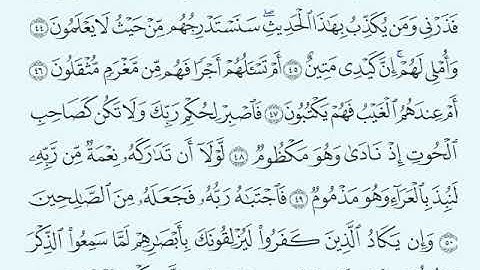 فَذَرْنِي وَمَن يُكَذِّبُ بِهَٰذَا ٱلْحَدِيثِ ۖ سَنَسْتَدْرِجُهُم مِّنْ حَيْثُ لَا يَعْلَمُونَ ٤٤
وَأُمْلِي لَهُمْ ۚ إِنَّ كَيْدِي مَتِينٌ ٤٥ أَمْ تَسْـَٔلُهُمْ أَجْرًا فَهُم مِّن مَّغْرَمٍ مُّثْقَلُونَ ٤٦
أَمْ عِندَهُمُ ٱلْغَيْبُ فَهُمْ يَكْتُبُونَ ٤٧ فَٱصْبِرْ لِحُكْمِ رَبِّكَ وَلَا تَكُن كَصَاحِبِ
ٱلْحُوتِ إِذْ نَادَىٰ وَهُوَ مَكْظُومٌ ٤٨ لَّوْلَآ أَن تَدَٰرَكَهُۥ نِعْمَةٌ مِّن رَّبِّهِۦ
لَنُبِذَ بِٱلْعَرَآءِ وَهُوَ مَذْمُومٌ ٤٩ فَٱجْتَبَٰهُ رَبُّهُۥ فَجَعَلَهُۥ مِنَ ٱلصَّٰلِحِينَ
٥٠ وَإِن يَكَادُ ٱلَّذِينَ كَفَرُوا۟ لَيُزْلِقُونَكَ بِأَبْصَٰرِهِمْ لَمَّا سَمِعُوا۟ ٱلذِّكْرَ